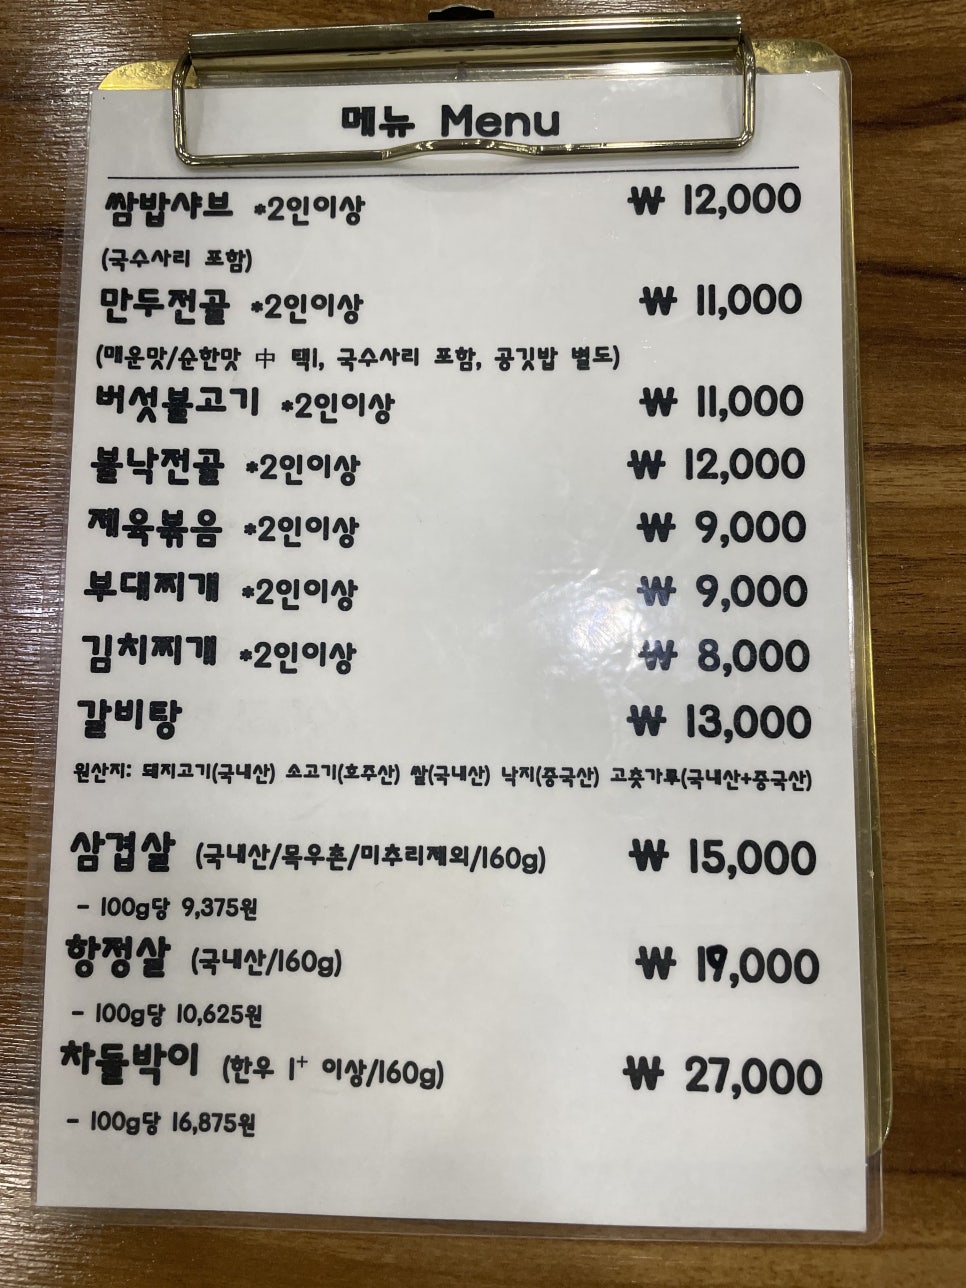 메뉴 Menu
쌈밥샤브 *2인이상 ₩ 12,000
(국수사리 포함)
만두전골 *2인이상 ₩ 11,000
(매운맛/순한맛 中 택1, 국수사리 포함, 공깃밥 별도)
버섯불고기 *2인이상 ₩ 11,000
불낙전골 *2인이상 ₩ 12,000
제육볶음 *2인이상 ₩ 9,000
부대찌개 *2인이상 ₩ 9,000
김치찌개 *2인이상 ₩ 8,000
갈비탕 ₩ 13,000
원산지: 돼지고기(국내산) 소고기(호주산) 쌀(국내산) 낙지(중국산) 고춧가루(국내산+중국산)
삼겹살 (국내산/목우촌/미추리제외/160g) ₩ 15,000
- 100g당 9,375원
항정살 (국내산/160g) ₩ 19,000
- 100g당 10,625원
차돌박이 (한우 1⁺ 이상/160g) ₩ 27,000
- 100g당 16,875원